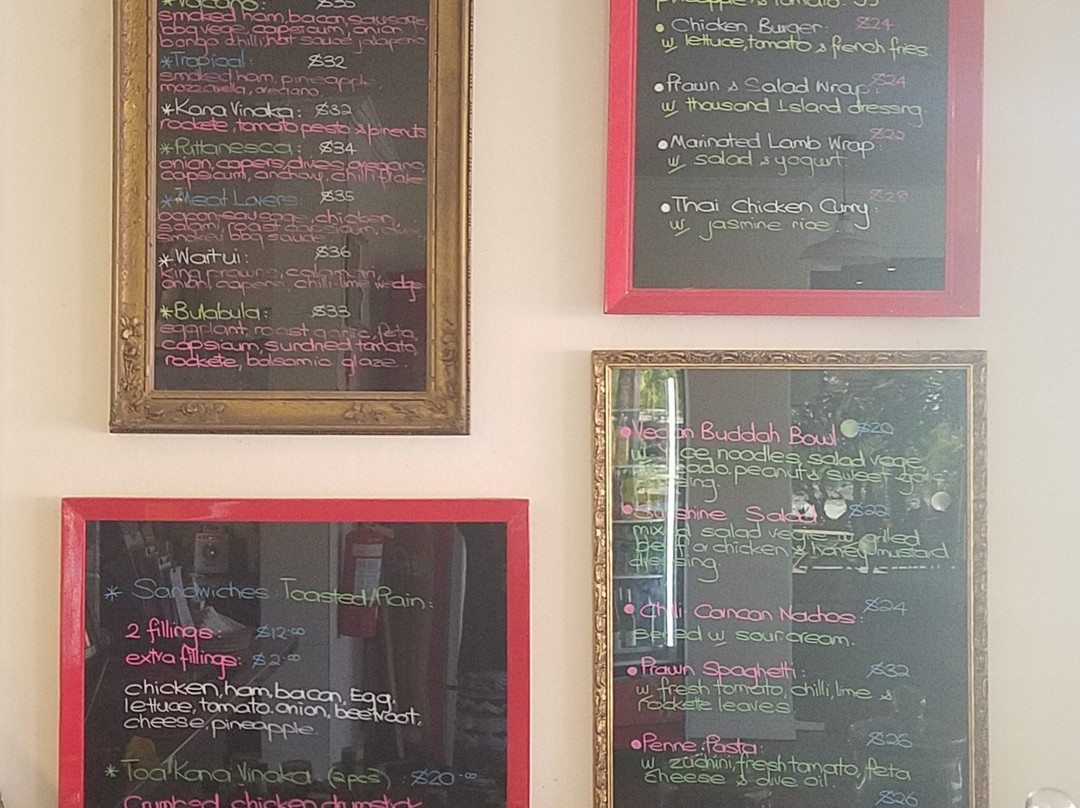 *Volcano: $35
smoked ham, bacon, sausage,
bbq vege, capsicum, onion
bongo chilli, hot sauce jalapeno
*Tropical: $32
smoked ham, pineapple
mozzarella, oregano.
*Kana Vinaka: $32
rockete, tomato pesto &
*Puttanesca: $34
onion, capers, olives, oregano,
capsicum, anchovy, chilli flake
*Meat Lovers: $35
bacon sausage, chicken,
salami, roast capsicum,
bbq sauce
*Waitui: $36
king prawns, calamari,
onion, capers, chilli-lime wedge
*Bulabula: $33
eggplant, roast garlic, feta,
capsicum, sundried tomato,
rockete, balsamic glaze.
* Sandwiches: Toasted/Plain:
2 fillings: $12.00
extra fillings: $2.00
chicken, ham, bacon, Egg,
lettuce, tomato, onion, beetroot,
cheese, pineapple.
*Toa Kana Vinaka (2pcs) $20.00
Crumbed chicken drumstick
pineapple & tomato.
• Chicken Burger $24
w/ lettuce, tomato & french fries.
•Prawn & Salad Wrap: $24
w/ thousand Island dressing
•Marinated Lamb Wrap:
w/ salad & yogurt
•Thai Chicken Curry:
w/ jasmine rice.
•Vegan Buddah Bowl $20
w/ rice noodles, salad vege,
peanut & sweet
•Sunshine Salad $22
mixed salad vegie w/ grilled
or chicken & honey mustard
dressing.
•Chilli Concon Nachos: $24
served w/ sour cream.
•Prawn Spaghetti: $32
w/ fresh tomato, chilli, lime &
rockete leaves
•Penne Pasta: $26
w/ zuchini, fresh tomato, feta
cheese & olive oil.
$26